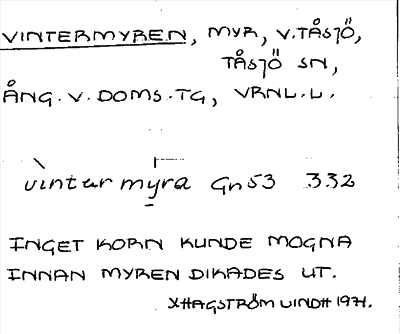 VINTERMYREN, MYR, V. TÅSJÖ,
TÅSJÖ SN,
ÅNG. V. DOMS. TG, VRNL. L.
vintermyra Gn 53 332
INGET KORN KUNDE MOGNA
INNAN MYREN DIKADES UT.
HAGSTRÖM 1971.